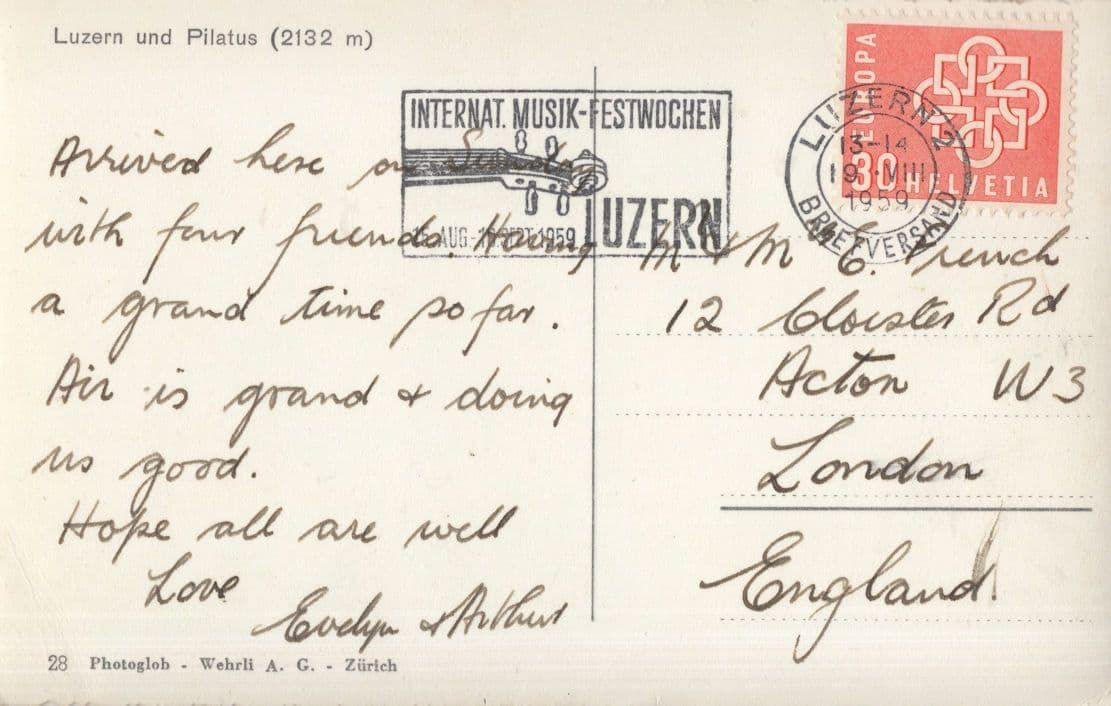 Luzern und Pilatus (2132 m)
INTERNAT. MUSIK-FESTWOCHEN
15. AUG.-10. SEPT. 1959 LUZERN
LUZERN 2
13-14
19.VIII
1959
BRIEFVERSAND
EUROPA
30 HELVETIA
Arrived here on Sunday
with four friends. Having
a grand time so far.
Air is grand & doing
us good.
Hope all are well
Love
Evelyn & Arthur
M & M E. French
12 Cloister Rd
Acton W3
London
England
28 Photoglob - Wehrli A. G. - Zürich